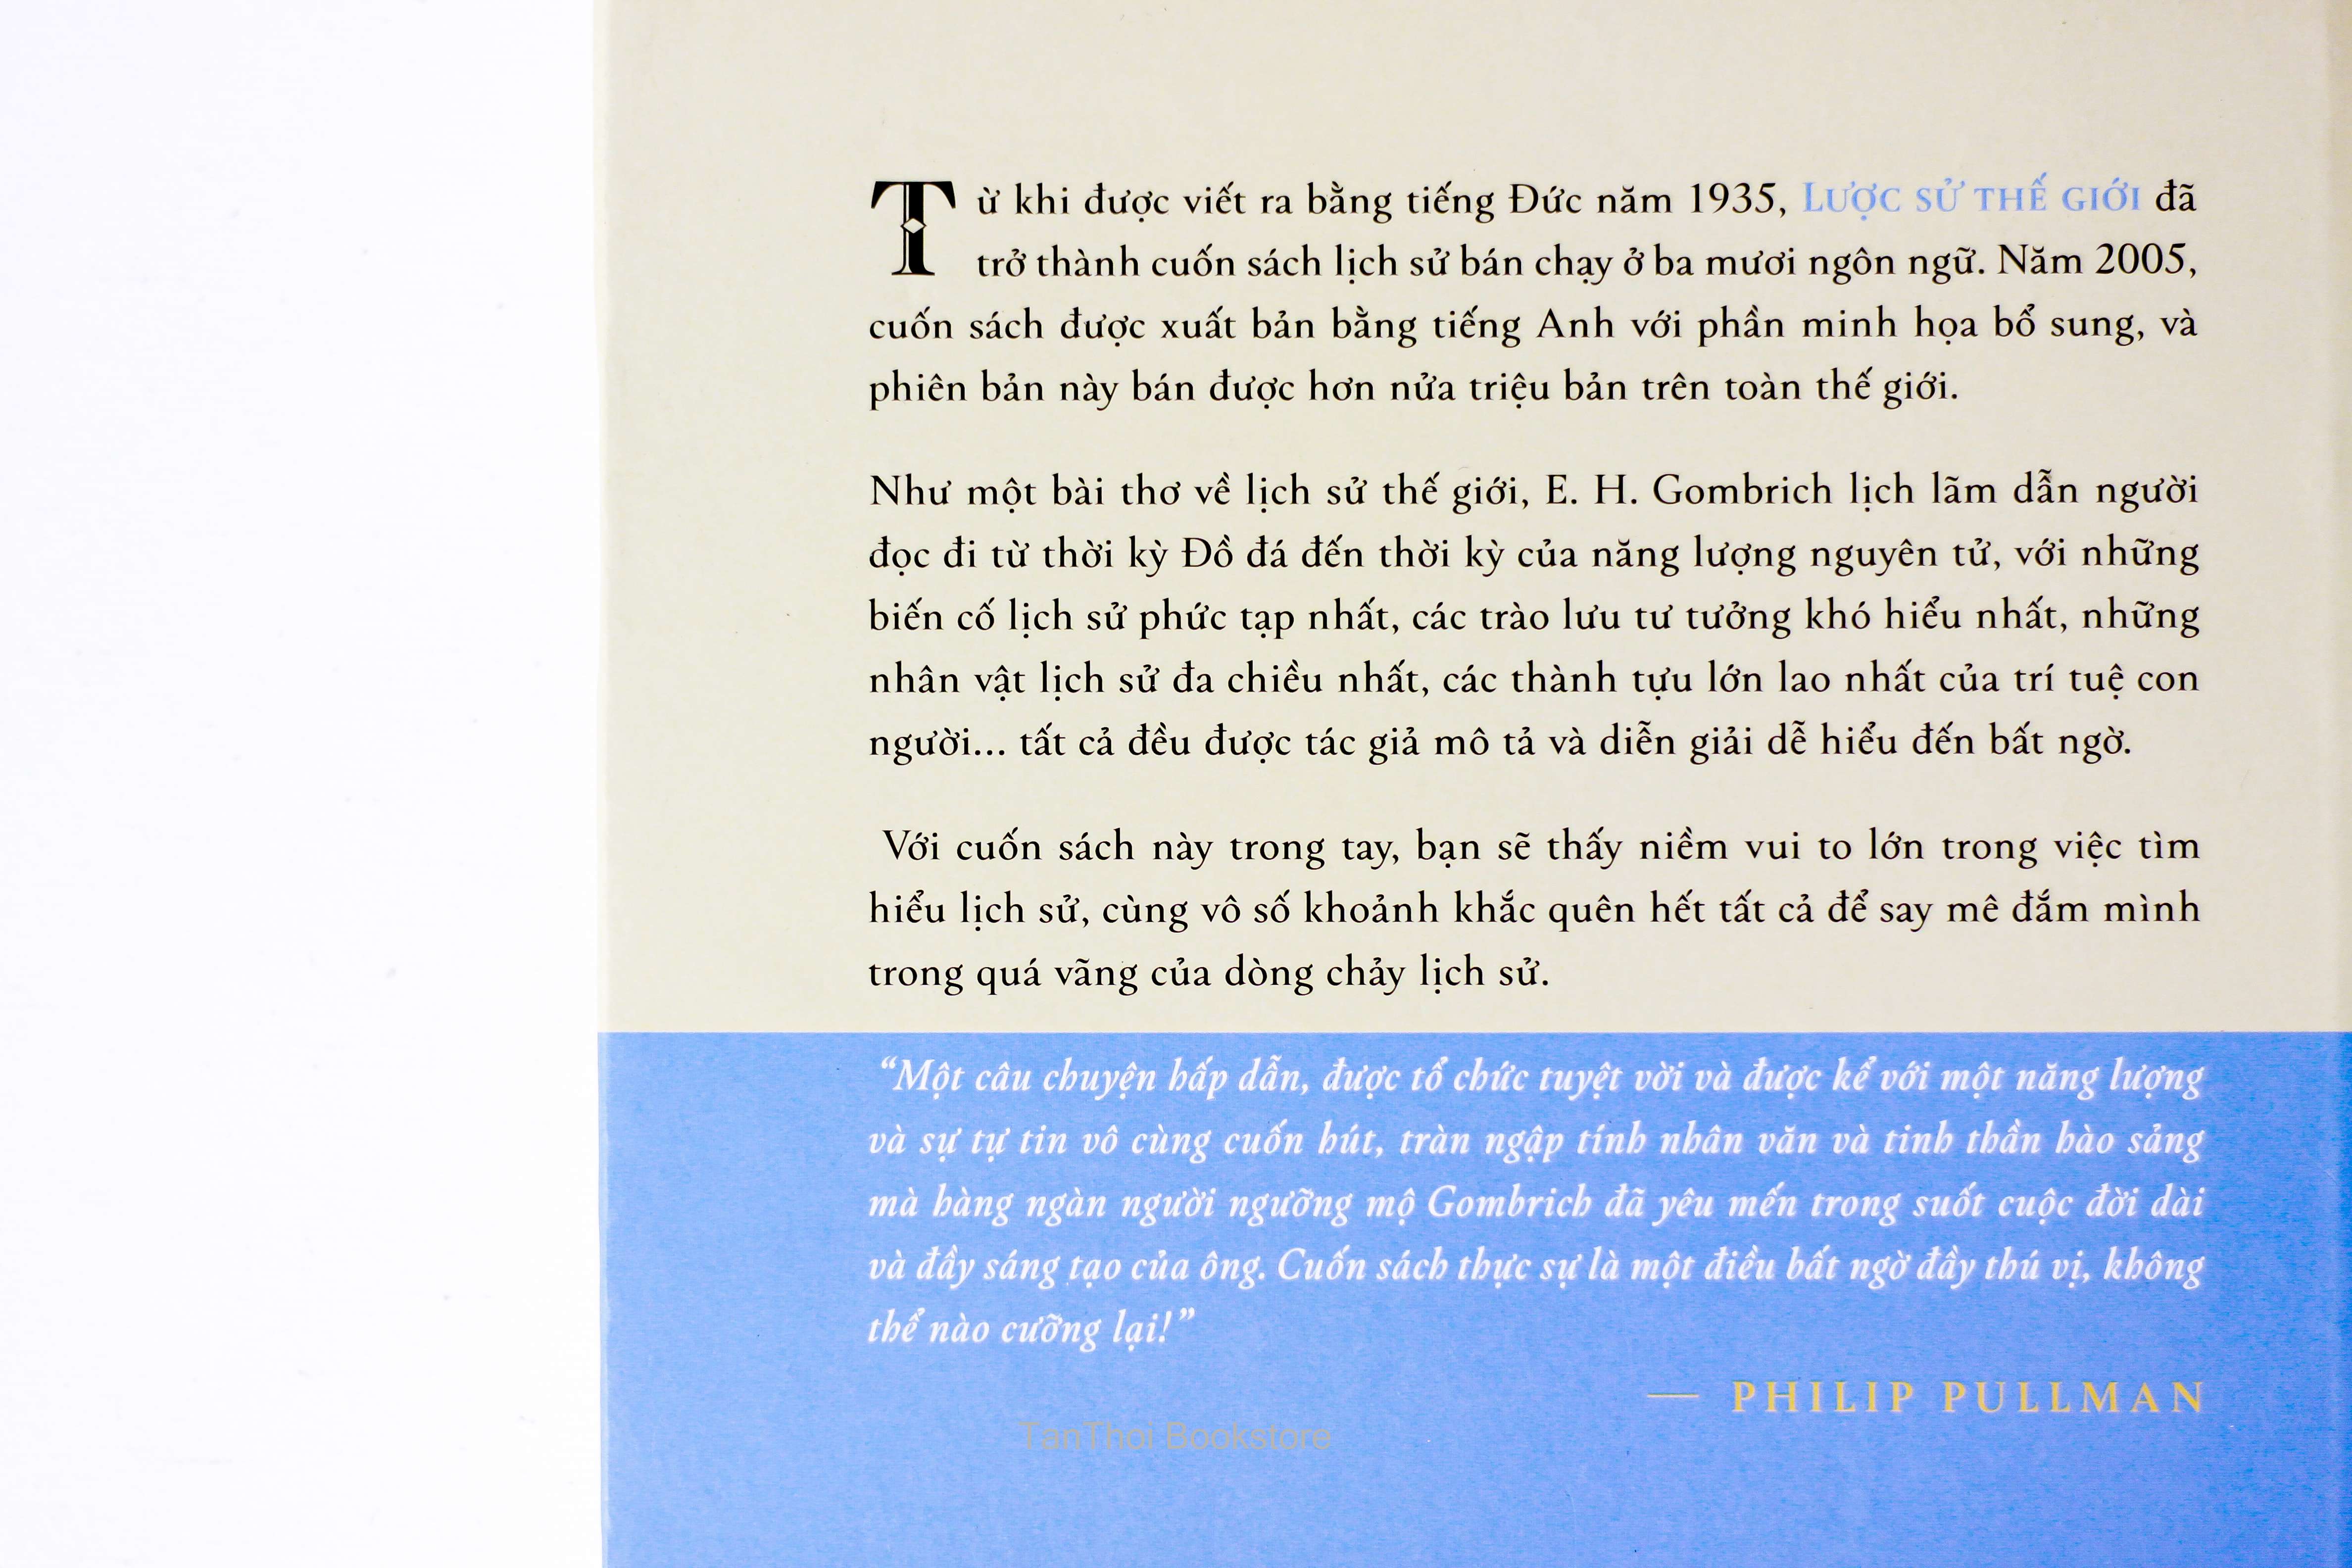 Từ khi được viết ra bằng tiếng Đức năm 1935, LƯỢC SỬ THẾ GIỚI đã
trở thành cuốn sách lịch sử bán chạy ở ba mươi ngôn ngữ. Năm 2005,
cuốn sách được xuất bản bằng tiếng Anh với phần minh họa bổ sung, và
phiên bản này bán được hơn nửa triệu bản trên toàn thế giới.
Như một bài thơ về lịch sử thế giới, E. H. Gombrich lịch lãm dẫn người
đọc đi từ thời kỳ Đồ đá đến thời kỳ của năng lượng nguyên tử, với những
biến cố lịch sử phức tạp nhất, các trào lưu tư tưởng khó hiểu nhất, những
nhân vật lịch sử đa chiều nhất, các thành tựu lớn lao nhất của trí tuệ con
người... tất cả đều được tác giả mô tả và diễn giải dễ hiểu đến bất ngờ.
Với cuốn sách này trong tay, bạn sẽ thấy niềm vui to lớn trong việc tìm
hiểu lịch sử, cùng vô số khoảnh khắc quên hết tất cả để say mê đắm mình
trong quá vãng của dòng chảy lịch sử.
“Một câu chuyện hấp dẫn, được tổ chức tuyệt vời và được kể với một năng lượng
và sự tự tin vô cùng cuốn hút, tràn ngập tính nhân văn và tinh thần hào sảng
mà hàng ngàn người ngưỡng mộ Gombrich đã yêu mến trong suốt cuộc đời dài
và đầy sáng tạo của ông. Cuốn sách thực sự là một điều bất ngờ đầy thú vị, không
thể nào cưỡng lại!”
— PHILIP PULLMAN
TanThoi Bookstore